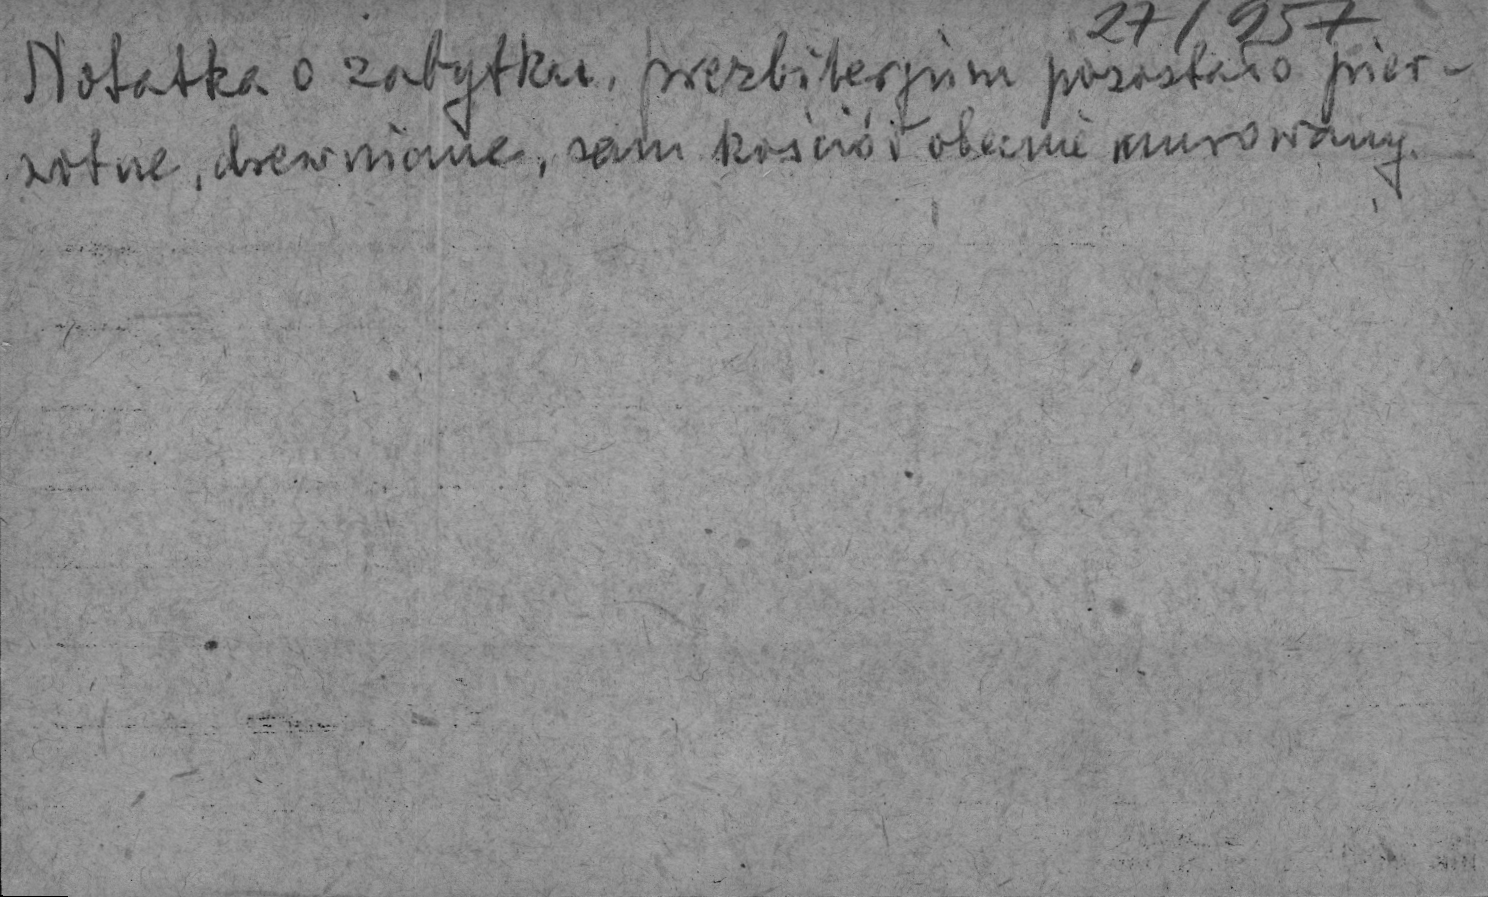 27/957
Notatka o zabytku, prezbiterjum pozostało pier-
wotne, drewniane, sam kościół obecnie murowany.